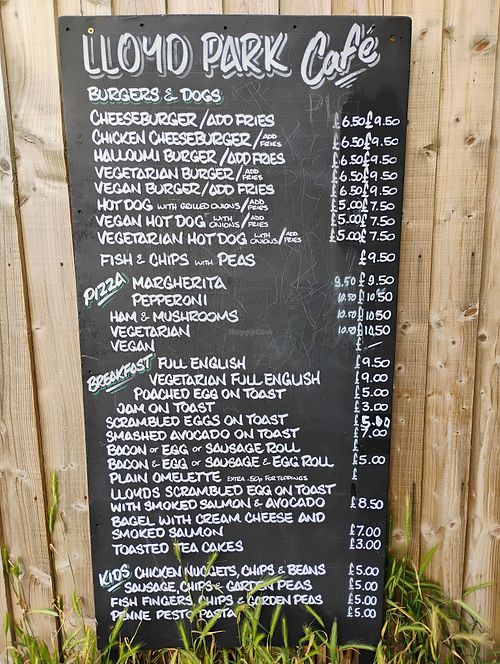 LLOYD PARK Café
BURGERS & DOGS
CHEESEBURGER/ADD FRIES £6.50 £9.50
CHICKEN CHEESEBURGER/ADD FRIES £6.50 £9.50
HALLOUMI BURGER/ADD FRIES £6.50 £9.50
VEGETARIAN BURGER/ADD FRIES £6.50 £9.50
VEGAN BURGER/ADD FRIES £6.50 £9.50
HOT DOG WITH GRILLED ONIONS/ADD FRIES £5.00 £7.50
VEGAN HOT DOG WITH ONIONS/ADD FRIES £5.00 £7.50
VEGETARIAN HOT DOG WITH ONIONS/ADD FRIES £5.00 £7.50
FISH & CHIPS WITH PEAS £9.50
PIZZA MARGHERITA 9.50 £9.50
PEPPERONI 10.50 £10.50
HAM & MUSHROOMS 10.50 £10.50
VEGETARIAN 10.50 £10.50
VEGAN £ —
BREAKFAST FULL ENGLISH £9.50
VEGETARIAN FULL ENGLISH £9.00
POACHED EGG ON TOAST £5.00
JAM ON TOAST £3.00
SCRAMBLED EGGS ON TOAST £5.00
SMASHED AVOCADO ON TOAST £7.00
BACON OR EGG OR SAUSAGE ROLL £
BACON & EGG OR SAUSAGE & EGG ROLL £5.00
PLAIN OMELETTE EXTRA .50p FOR TOPPINGS £
LLOYDS SCRAMBLED EGG ON TOAST
WITH SMOKED SALMON & AVOCADO £8.50
BAGEL WITH CREAM CHEESE AND
SMOKED SALMON £7.00
TOASTED TEA CAKES £3.00
KIDS CHICKEN NUGGETS, CHIPS & BEANS £5.00
SAUSAGE, CHIPS & GARDEN PEAS £5.00
FISH FINGERS, CHIPS & GARDEN PEAS £5.00
PENNE PESTO PASTA £5.00
HappyCow